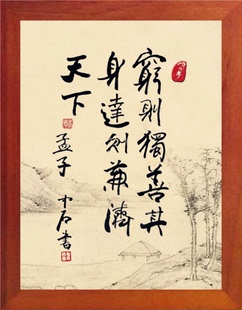 窮則獨善其
身達則兼濟
天下
孟子
中石書